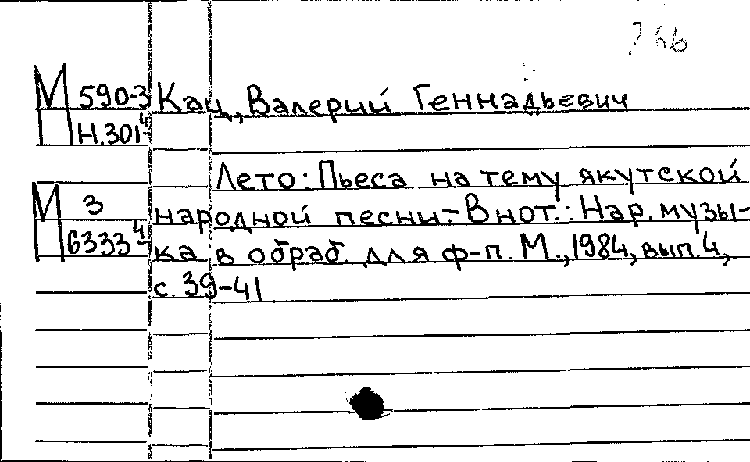 М 590-3 Кац, Валерий Геннадьевич
Н.301ч
Лето: Пьеса на тему якутской
М 3 народной песни.- В нот.: Нар. музы-
6333ч ка в обраб. для ф-п. М., 1984, вып. 4,
с. 39-41